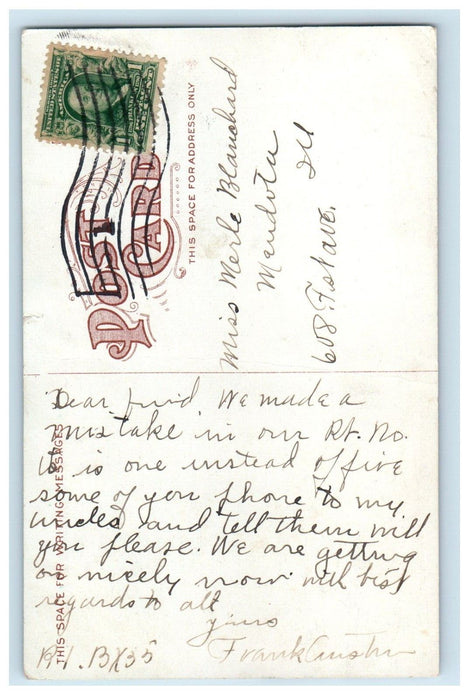 POST CARD
THIS SPACE FOR ADDRESS ONLY
Miss Merle Blanchard
Mendota
Ill
608 Fst ave.
THIS SPACE FOR WRITING MESSAGES
Dear frind We made a
mistake in our Rt. No.
it is one instead of five
some of you phone to my
uncles and tell them will
you please. We are getting
on nicely now with best
regards to all
yours
Frank Austin
R.1. BX35